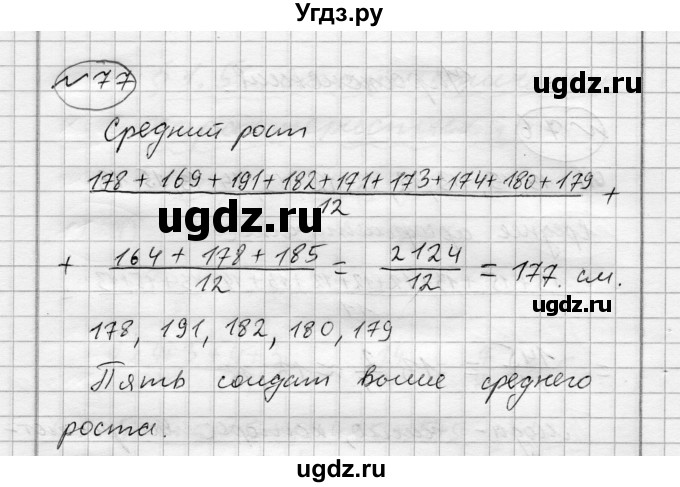 Угдз.ру
№ 77
ugdz.ru
Средний рост
178 + 169 + 191 + 182 + 171 + 173 + 174 + 180 + 179 +
12
ugdz.ru
ugdz.ru
+ 164 + 178 + 185 = 2124 = 177. см.
12 12
ugdz.ru
178, 191, 182, 180, 179
Пять солдат выше среднего
роста.
ugdz.ru
ugdz.ru